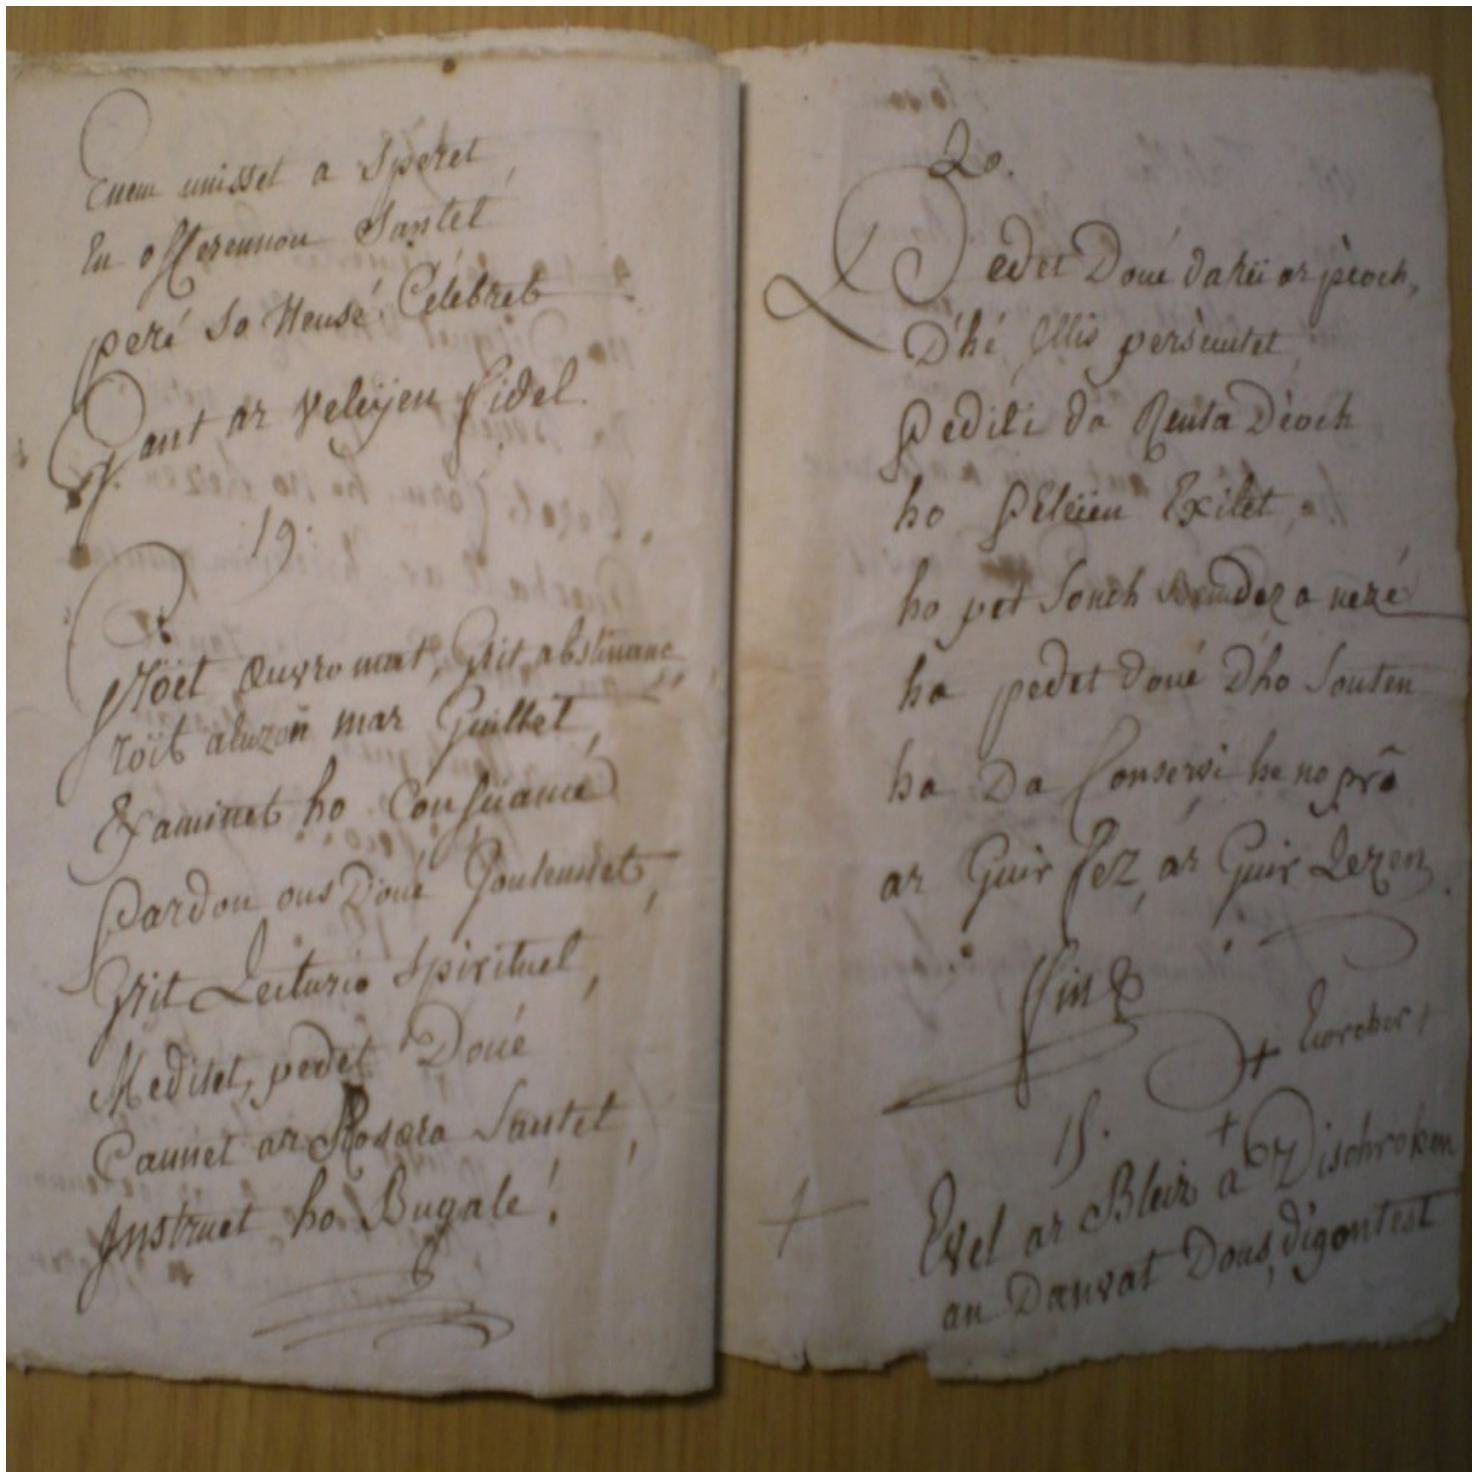 Enem unisset a Speret,
En offerennou Santel
peré So Neusé Célébret
Gant ar veleÿen fidel.
19.
Gröet œuvro mat, Grit abstinanç,
röit aluzon mar Guillet,
Examinet ho Consciancé
Pardon ous Doué Goulennet,
Grit Lecturio Spirituel,
Meditet, pedet Doué
Cannet ar Rosæra Santel,
Instruet ho Bugale!
20.
Pedet Doué da rëi ar pèoch,
D'hé Ilis persecutet
Pediti da Renta Deoch
ho Peleïen Exilet,
ho pet Sonch bemdez a nezé
ha pedet doué D'ho Souten
ha Da Conservi he no prõ
ar Guir fez, ar Guir Lezen.
fin
+
15. +
+ Evel ar Bleiz a Zischroken
an Danvat Dous, digontest